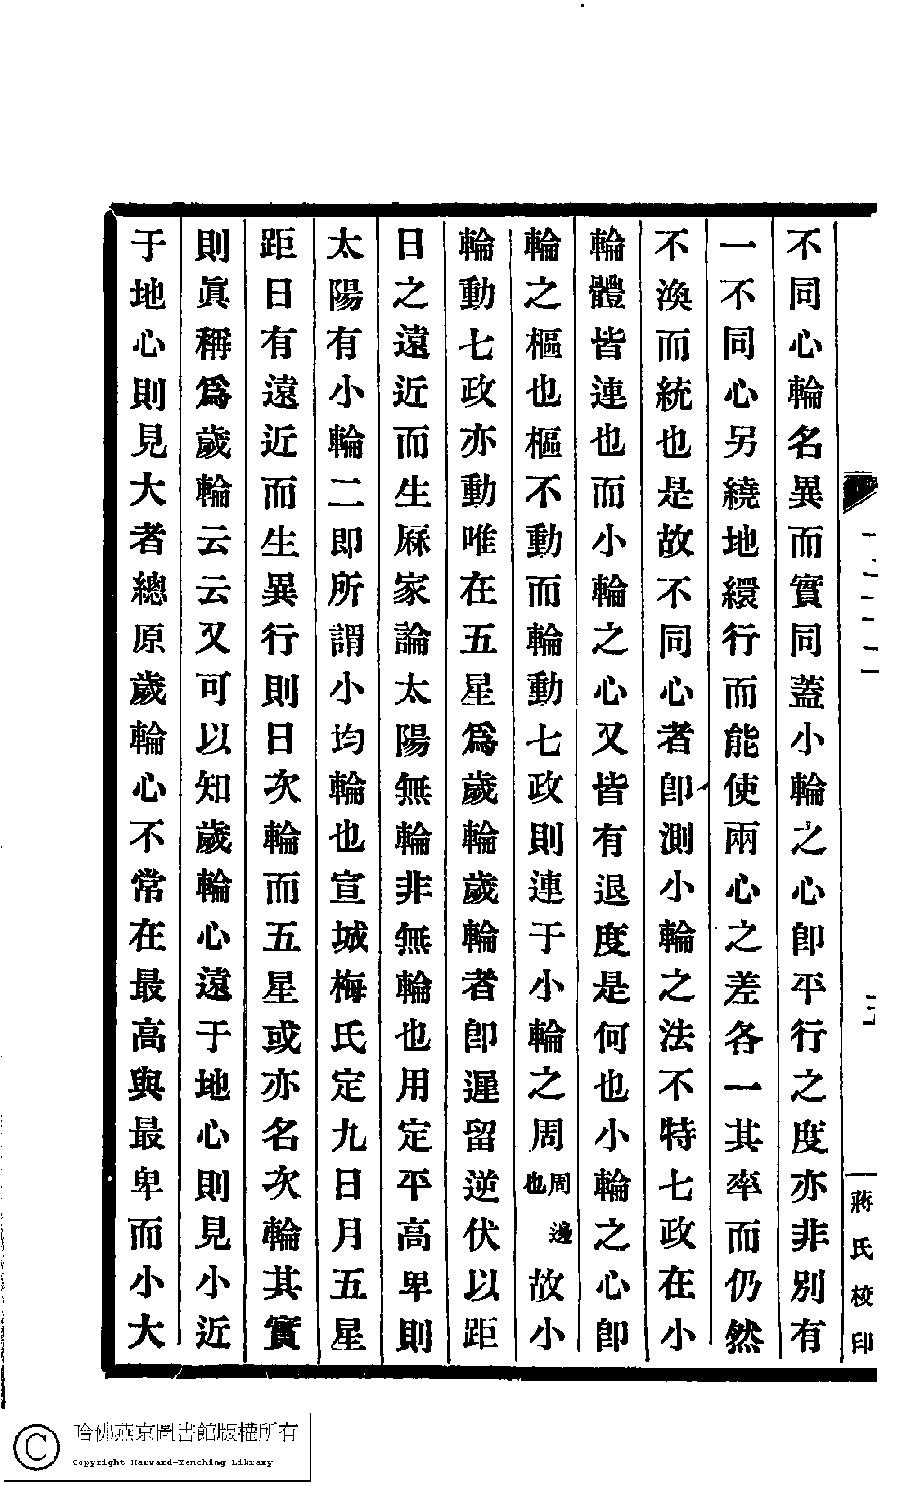 不同心輪名異而實同蓋小輪之心卽平行之度亦非別有
一不同心另繞地繯行而能使兩心之差各一其率而仍然
不渙而統也是故不同心者卽測小輪之法不特七政在小
輪體皆連也而小輪之心又皆有退度是何也小輪之心卽
輪之樞也樞不動而輪動七政則連于小輪之周周邊也故小
輪動七政亦動唯在五星爲歲輪歲輪者卽遲留逆伏以距
日之遠近而生厤家論太陽無輪非無輪也用定平高卑則
太陽有小輪二即所謂小均輪也宣城梅氏定九日月五星
距日有遠近而生異行則日次輪而五星或亦名次輪其實
則眞稱爲歲輪云云又可以知歲輪心遠于地心則見小近
于地心則見大者總原歲輪心不常在最高與最卑而小大
蔣氏校印
哈佛燕京圖書館版權所有
Copyright Harvard-Yenching Library